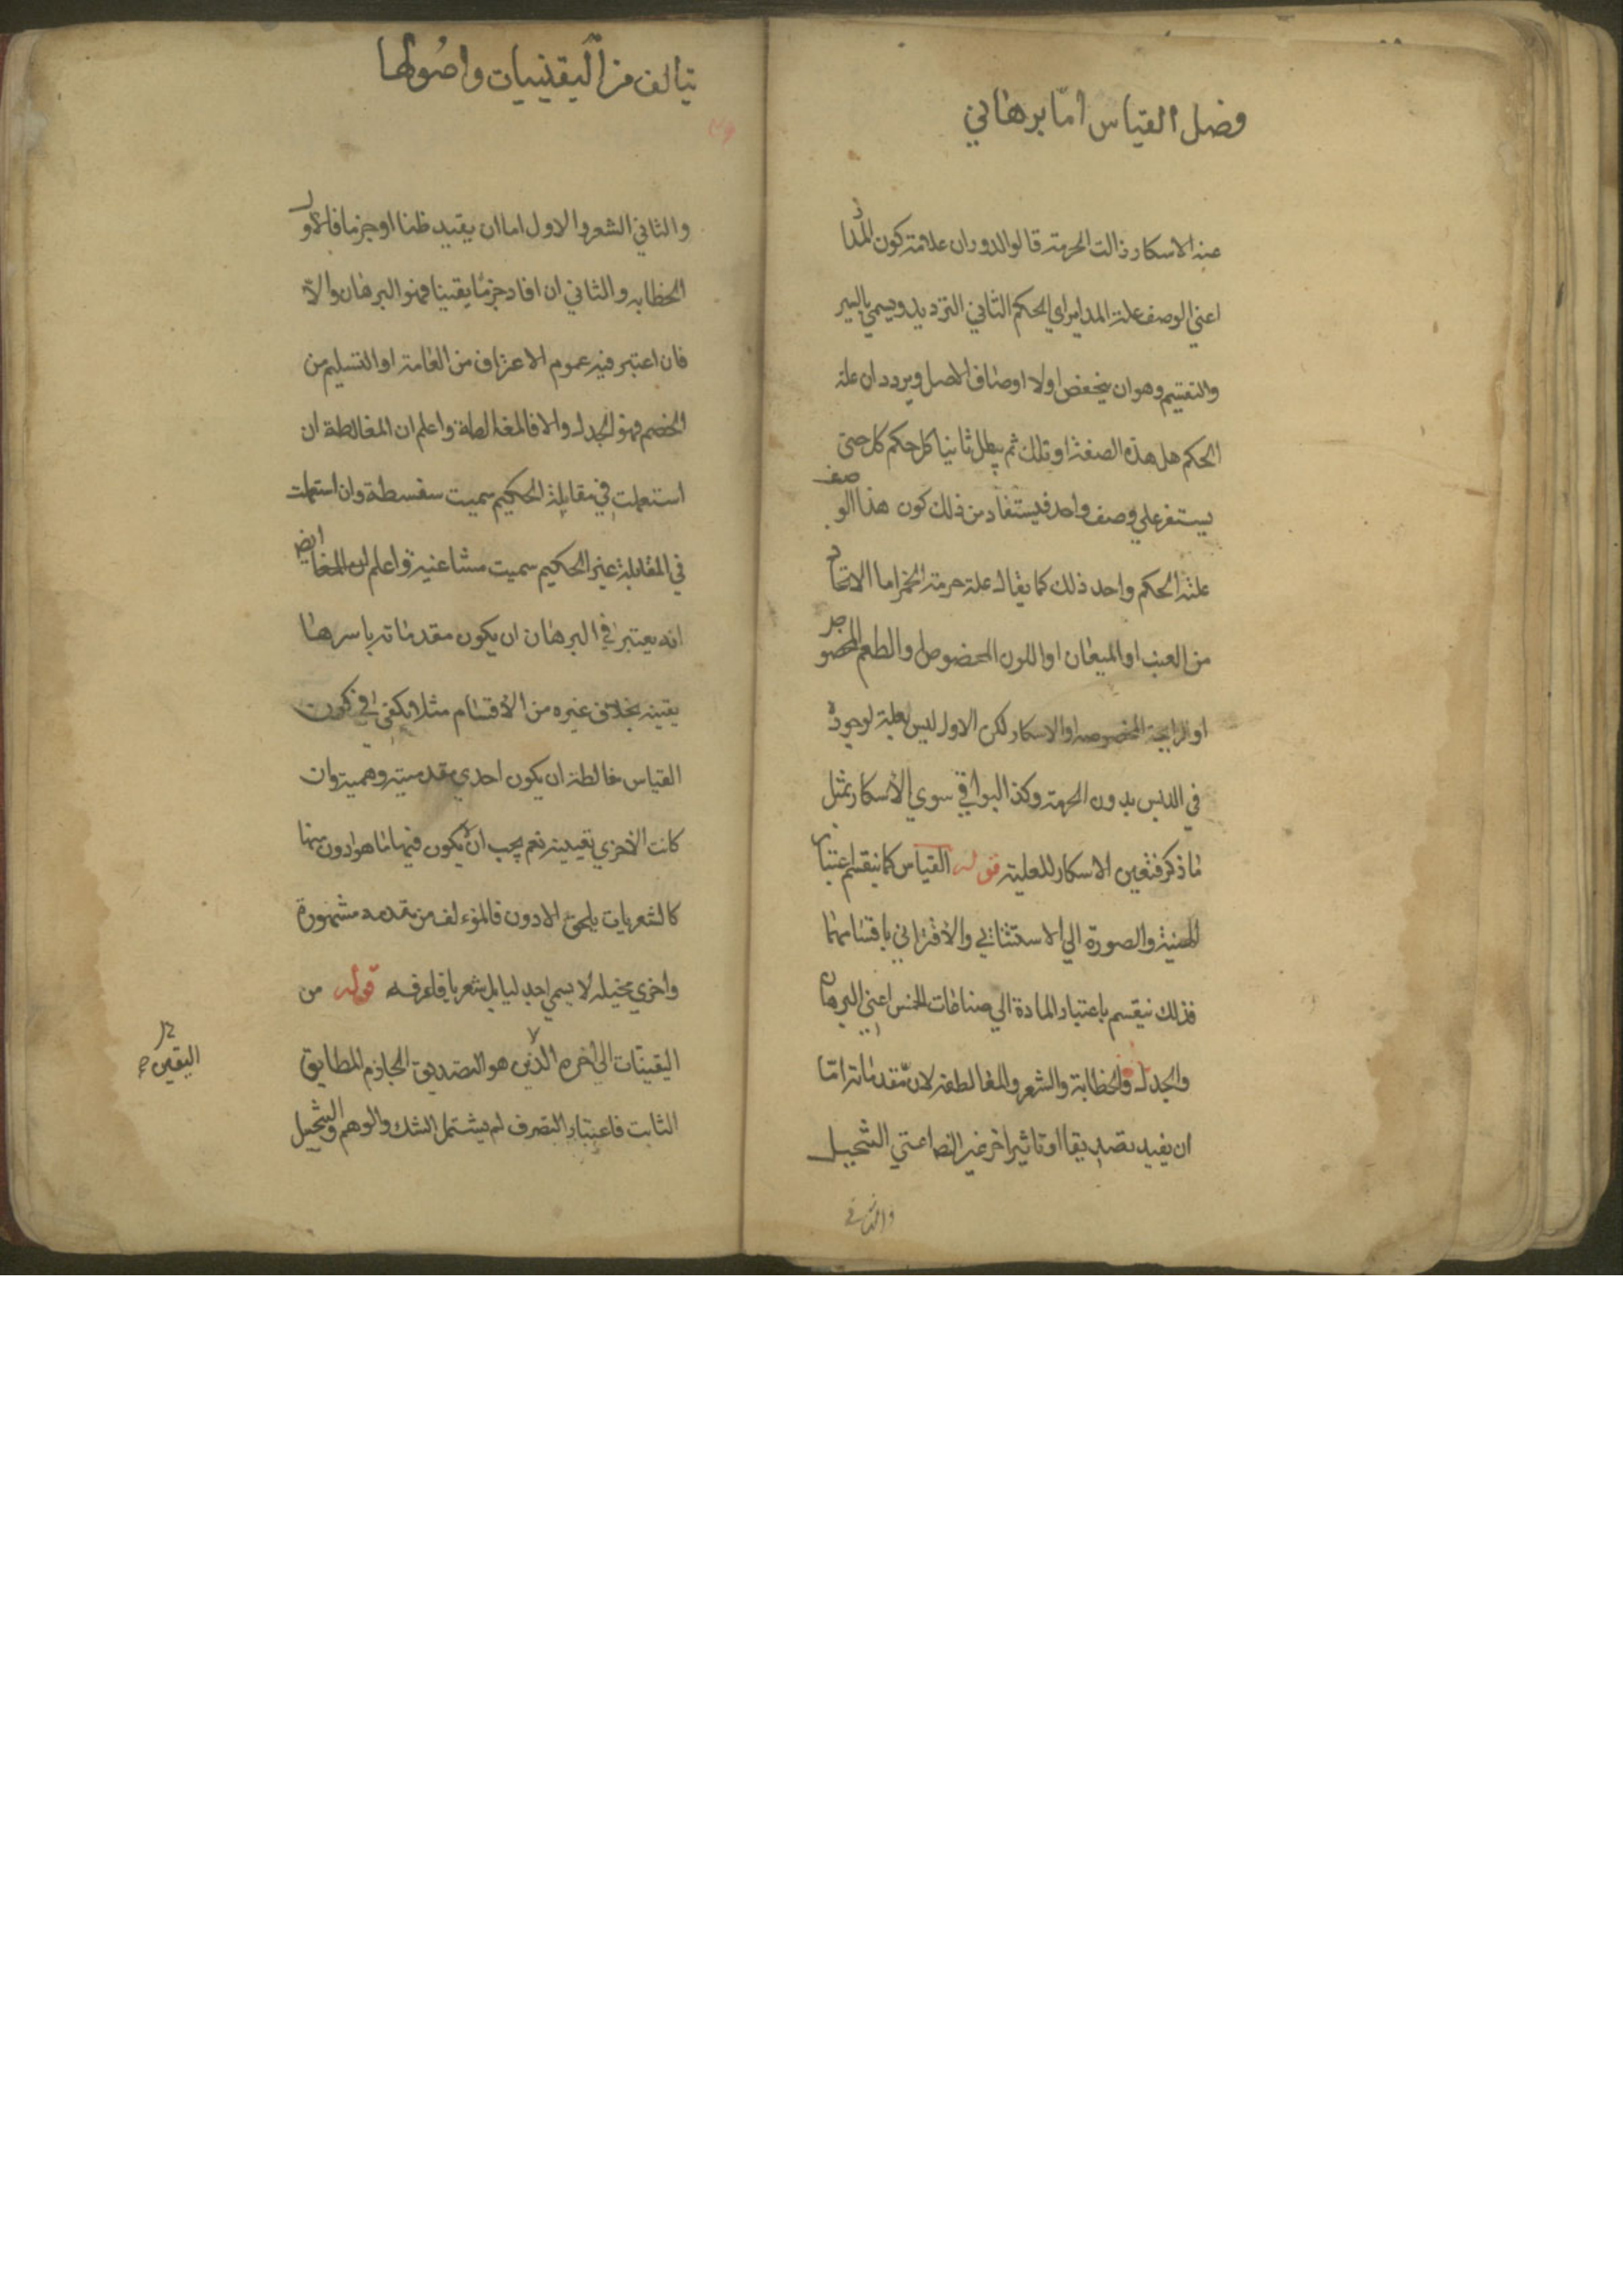 فضل القياس امّا برهاني
عنه الاسكار زالت الحرمة قالوا الدوران علامة كون المدار
اعني الوصف علة المداير اي الحكم الثاني الترديد ويسمي بالسير
والتقسيم وهوان يتخفض اولا اوصاف الاصل ويردد ان علة
الحكم هل هذة الصفة او تلك ثم يبطل ثانيا كل حكم كل حتى
يستقر علي وصف واحد فيستفاد من ذلك كون هذا الوصف
علة الحكم واحد ذلك كما يقال علة حرمة الخمر اما الاتخاد
من العنب او الميعان او اللون المخصوص او الطعم المخصو
او الرايحة المخصوصه او الاسكار لكن الاول ليس بعلة لوجوده
في الدبس بدون الحرمة وكذا البواقي سوي الاسكار بمثل
ما ذكر فتعين الاسكار للعلية قوله القياس كما ينقسم باعتبار
الهيئة والصورة الي الاستثنائي والاقتراني باقسامهما
فذلك ينقسم باعتبار المادة الي صناعات الخمس اعني البرهان
والجدل والخطابة والشعر والمغالطة لان مقدماته امّا
ان يفيد تصديقا او تاثيرا اخر غير اعني التخييل
والثاني
يتالف من اليقينيات واصولها
والثاني الشعر والاول اما ان يفيد ظنا او جزما فالاول
الخطابه والثاني ان افاد جزمًا يقينا فهو البرهان والاّ
فان اعتبر فيه عموم الاعتراف من العامة او التسليم من
الخصم فهو الجدل والا فالمغالطة واعلم ان المغالطة ان
استعملت في مقابلة الحكيم سميت سفسطة وان استعملت
في المقابلة غير الحكيم سميت مشاغبة واعلم ان ايضا
انه يعتبر في البرهان ان يكون مقدماته باسرها
يقينه بخلاف غيره من الاقسام مثلا يكفي في كون
القياس غالطة ان يكون احدي مقدمتيه وهمية وان
كانت الاخري يقينية نعم يجب ان لا يكون فيها ما هو ادون منها
كالشعريات يلحق الادون فالمؤلف من مقدمه مشهورة
واخري مخيله لا يسمي جدليا بل شعريا فاعرفه قوله من
اليقينّات الي اخره اليقين هو التصديق الجازم المطابق
اليقين
الثابت فاعتبار التصرف لم يشتمل الشك والوهم والتخييل